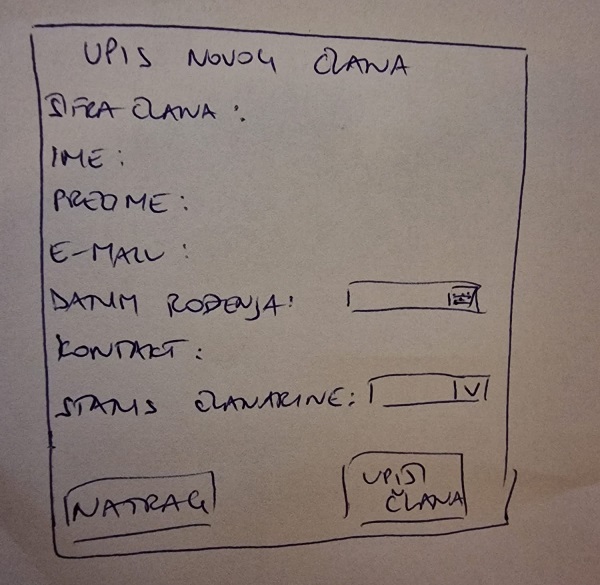 UPIS NOVOG ČLANA
ŠIFRA ČLANA:
IME:
PREZIME:
E-MAIL:
DATUM ROĐENJA:
KONTAKT:
STATUS ČLANARINE:
NATRAG
UPIŠI
ČLANA